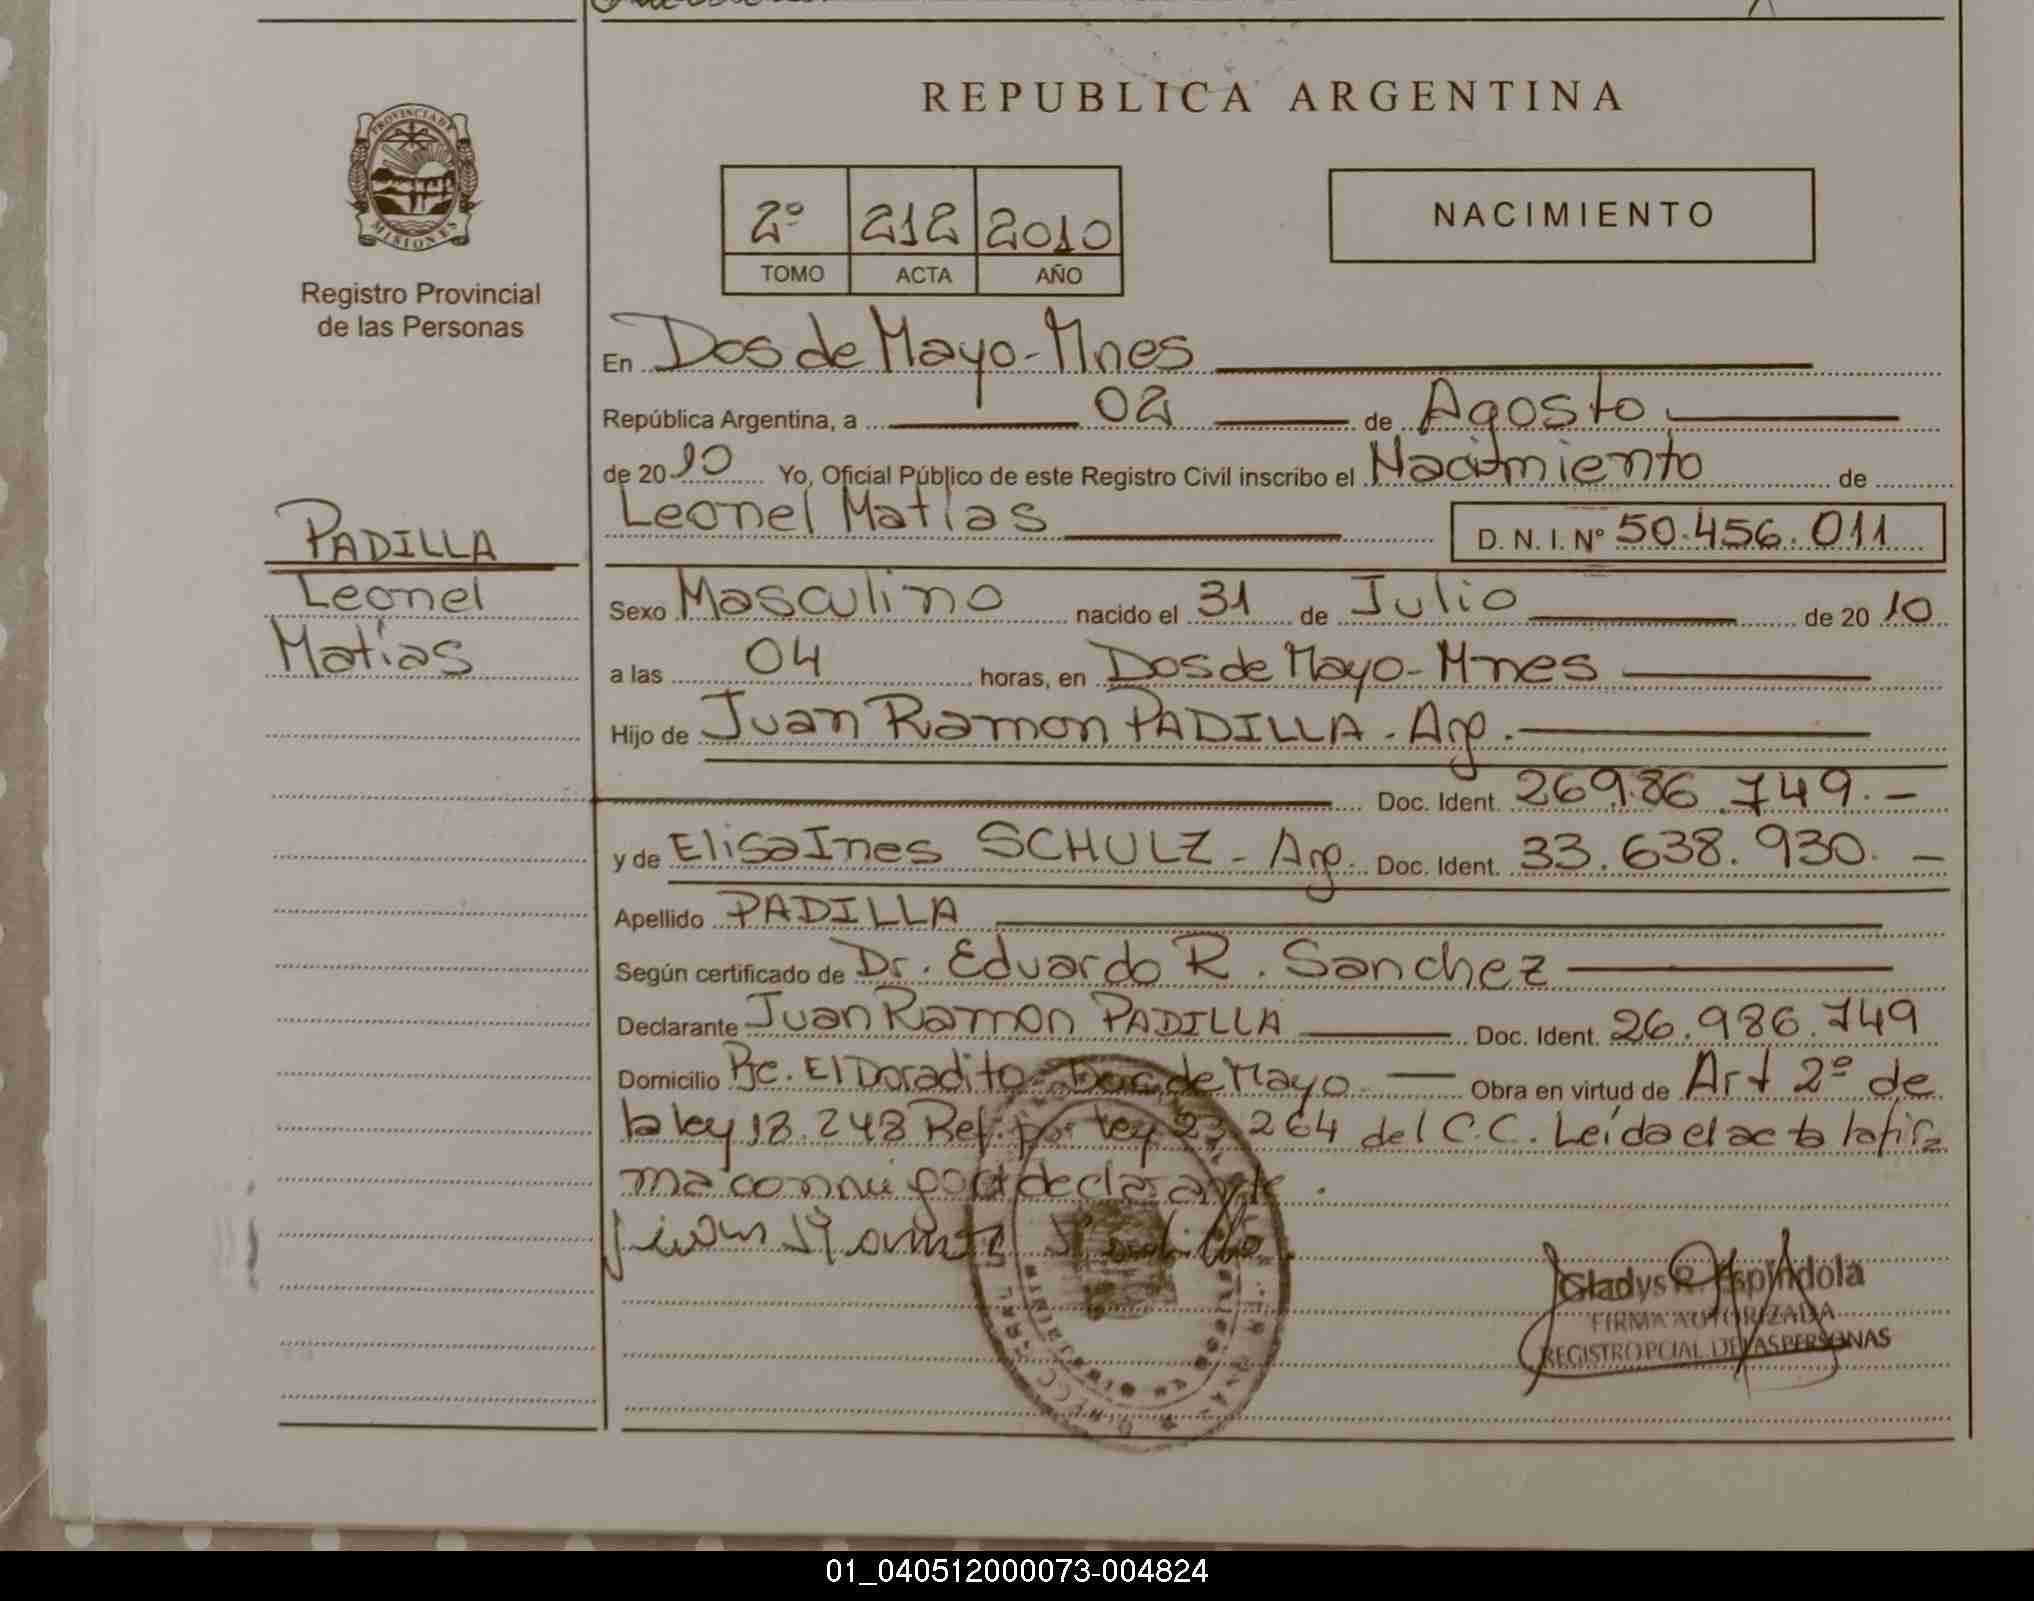 REPUBLICA ARGENTINA
PROVINCIA DE
MISIONES
Registro Provincial
de las Personas
2º 212 2010
TOMO ACTA AÑO
NACIMIENTO
En Dos de Mayo - Mnes
República Argentina, a 02 de Agosto
de 2010 Yo, Oficial Público de este Registro Civil inscribo el Nacimiento de
Leonel Matias D. N. I. Nº 50.456.011
PADILLA
Leonel
Matias
Sexo Masculino nacido el 31 de Julio de 2010
a las 04 horas, en Dos de Mayo - Mnes
Hijo de Juan Ramon PADILLA - Arg.
Doc. Ident. 26986.749. -
y de Elisa Ines SCHULZ - Arg. Doc. Ident. 33.638.930. -
Apellido PADILLA
Según certificado de Dr. Eduardo R. Sanchez
Declarante Juan Ramon PADILLA Doc. Ident. 26.986.749
Domicilio Pje. El Doradito - Dos de Mayo Obra en virtud de Art 2º de
la ley 18.248 Ref. por ley 23.264 del C.C. Leída el acta la fir
ma conmigo el declarante.
Juan Ramon Padilla
Gladys R. Espindola
FIRMA AUTORIZADA
REGISTRO PCIAL. DE LAS PERSONAS
01_040512000073-004824